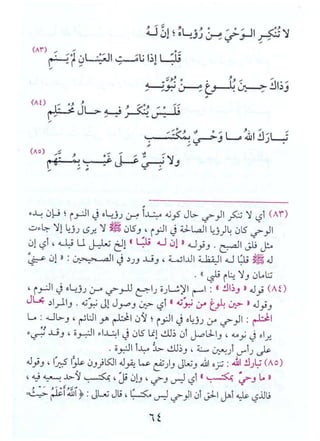 لَا تُنْكِرِ الوَحْيَ مِنْ رُؤْيَاهُ ؛ إنَّ لَهُ
قَلْبًا إِذَا نَامَتِ العَيْنَانِ لَمْ يَنَمِ (٨٣)
وَذَاكَ حِينَ بُلُوغٍ مِنْ نُبُوَّتِهِ
فَلَيْسَ يُنْكَرُ فِيهِ حَالُ مُحْتَلِمِ (٨٤)
تَبَارَكَ اللهُ مَا وَحْيٌ بِمُكْتَسَبٍ
وَلَا نَبِيٌّ عَلَى غَيْبٍ بِمُتَّهَمِ (٨٥)
(٨٣) أي لا تنكر الوحي حال كونه مبتدأ من رؤياه في النوم ؛ فإن بدء
الوحي كان بالرؤيا الصالحة في النوم ، وكان ﷺ لا يرى رؤيا إلا جاءت
مثل فلق الصبح . وقوله « إن له قلبًا » إلخ تعليل لما قبله ، أي إن
له ﷺ قلبًا له اليقظة الدائمة ، وقد ورد في الصحيحين : « إن عينيّ
تنامان ولا ينام قلبي » .
(٨٤) قوله « وذاك » : اسم الإشارة راجع للوحي من رؤياه في النوم ،
وقوله « حين بلوغ من نبوته » أي حين وصول إلى نبوته . والمراد بحال
المحتلم : الوحي من رؤياه في النوم ؛ لأن المحتلم هو النائم ، وحاله : ما
يراه في نومه ، والحاصل أن ذلك إنما كان في ابتداء النبوة ، وقد نُبِّيء
على رأس أربعين سنة ، وذلك حدُّ مبدأ النبوة .
(٨٥) تبارك الله : تنزه الله وتعالى وارتفع عما يقوله الكافرون علوًّا كبيرًا ، وقوله
« ما وحيٌ بمكتسب » أي ليس وحي ، وإن قلّ ، بمكتسب لأحد بسعيه فيه ،
فالذي عليه أهل الحق أن الوحي ليس مكتسبًا ، قال تعالى : ﴿ اللهُ أَعْلَمُ حَيْثُ
٦٤